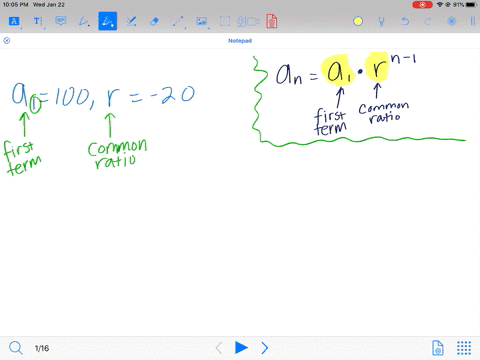 10:05 PM Wed Jan 22
91%
Notepad
a₁=100, r = -20
first
term
common
ratio
aₙ = a₁ • r^(n-1)
first
term
common
ratio
1/16